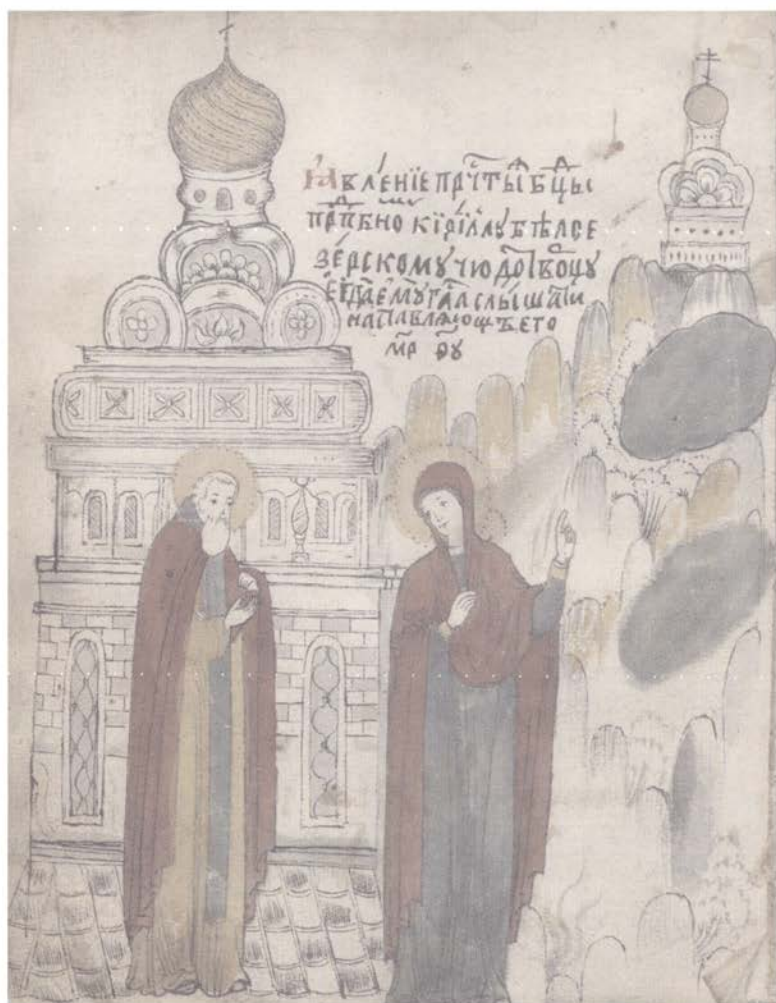 Ꙗвле́нїе прⷭ҇чтыѧ бцⷣы
прпⷣбноⷨу кирїллу бѣлое
зе́рскому чюдотво́рцу
е҆гда̀ є҆мꙋ̀ гла́съ слы́шати
направлѧющъ его
МР ѲУ